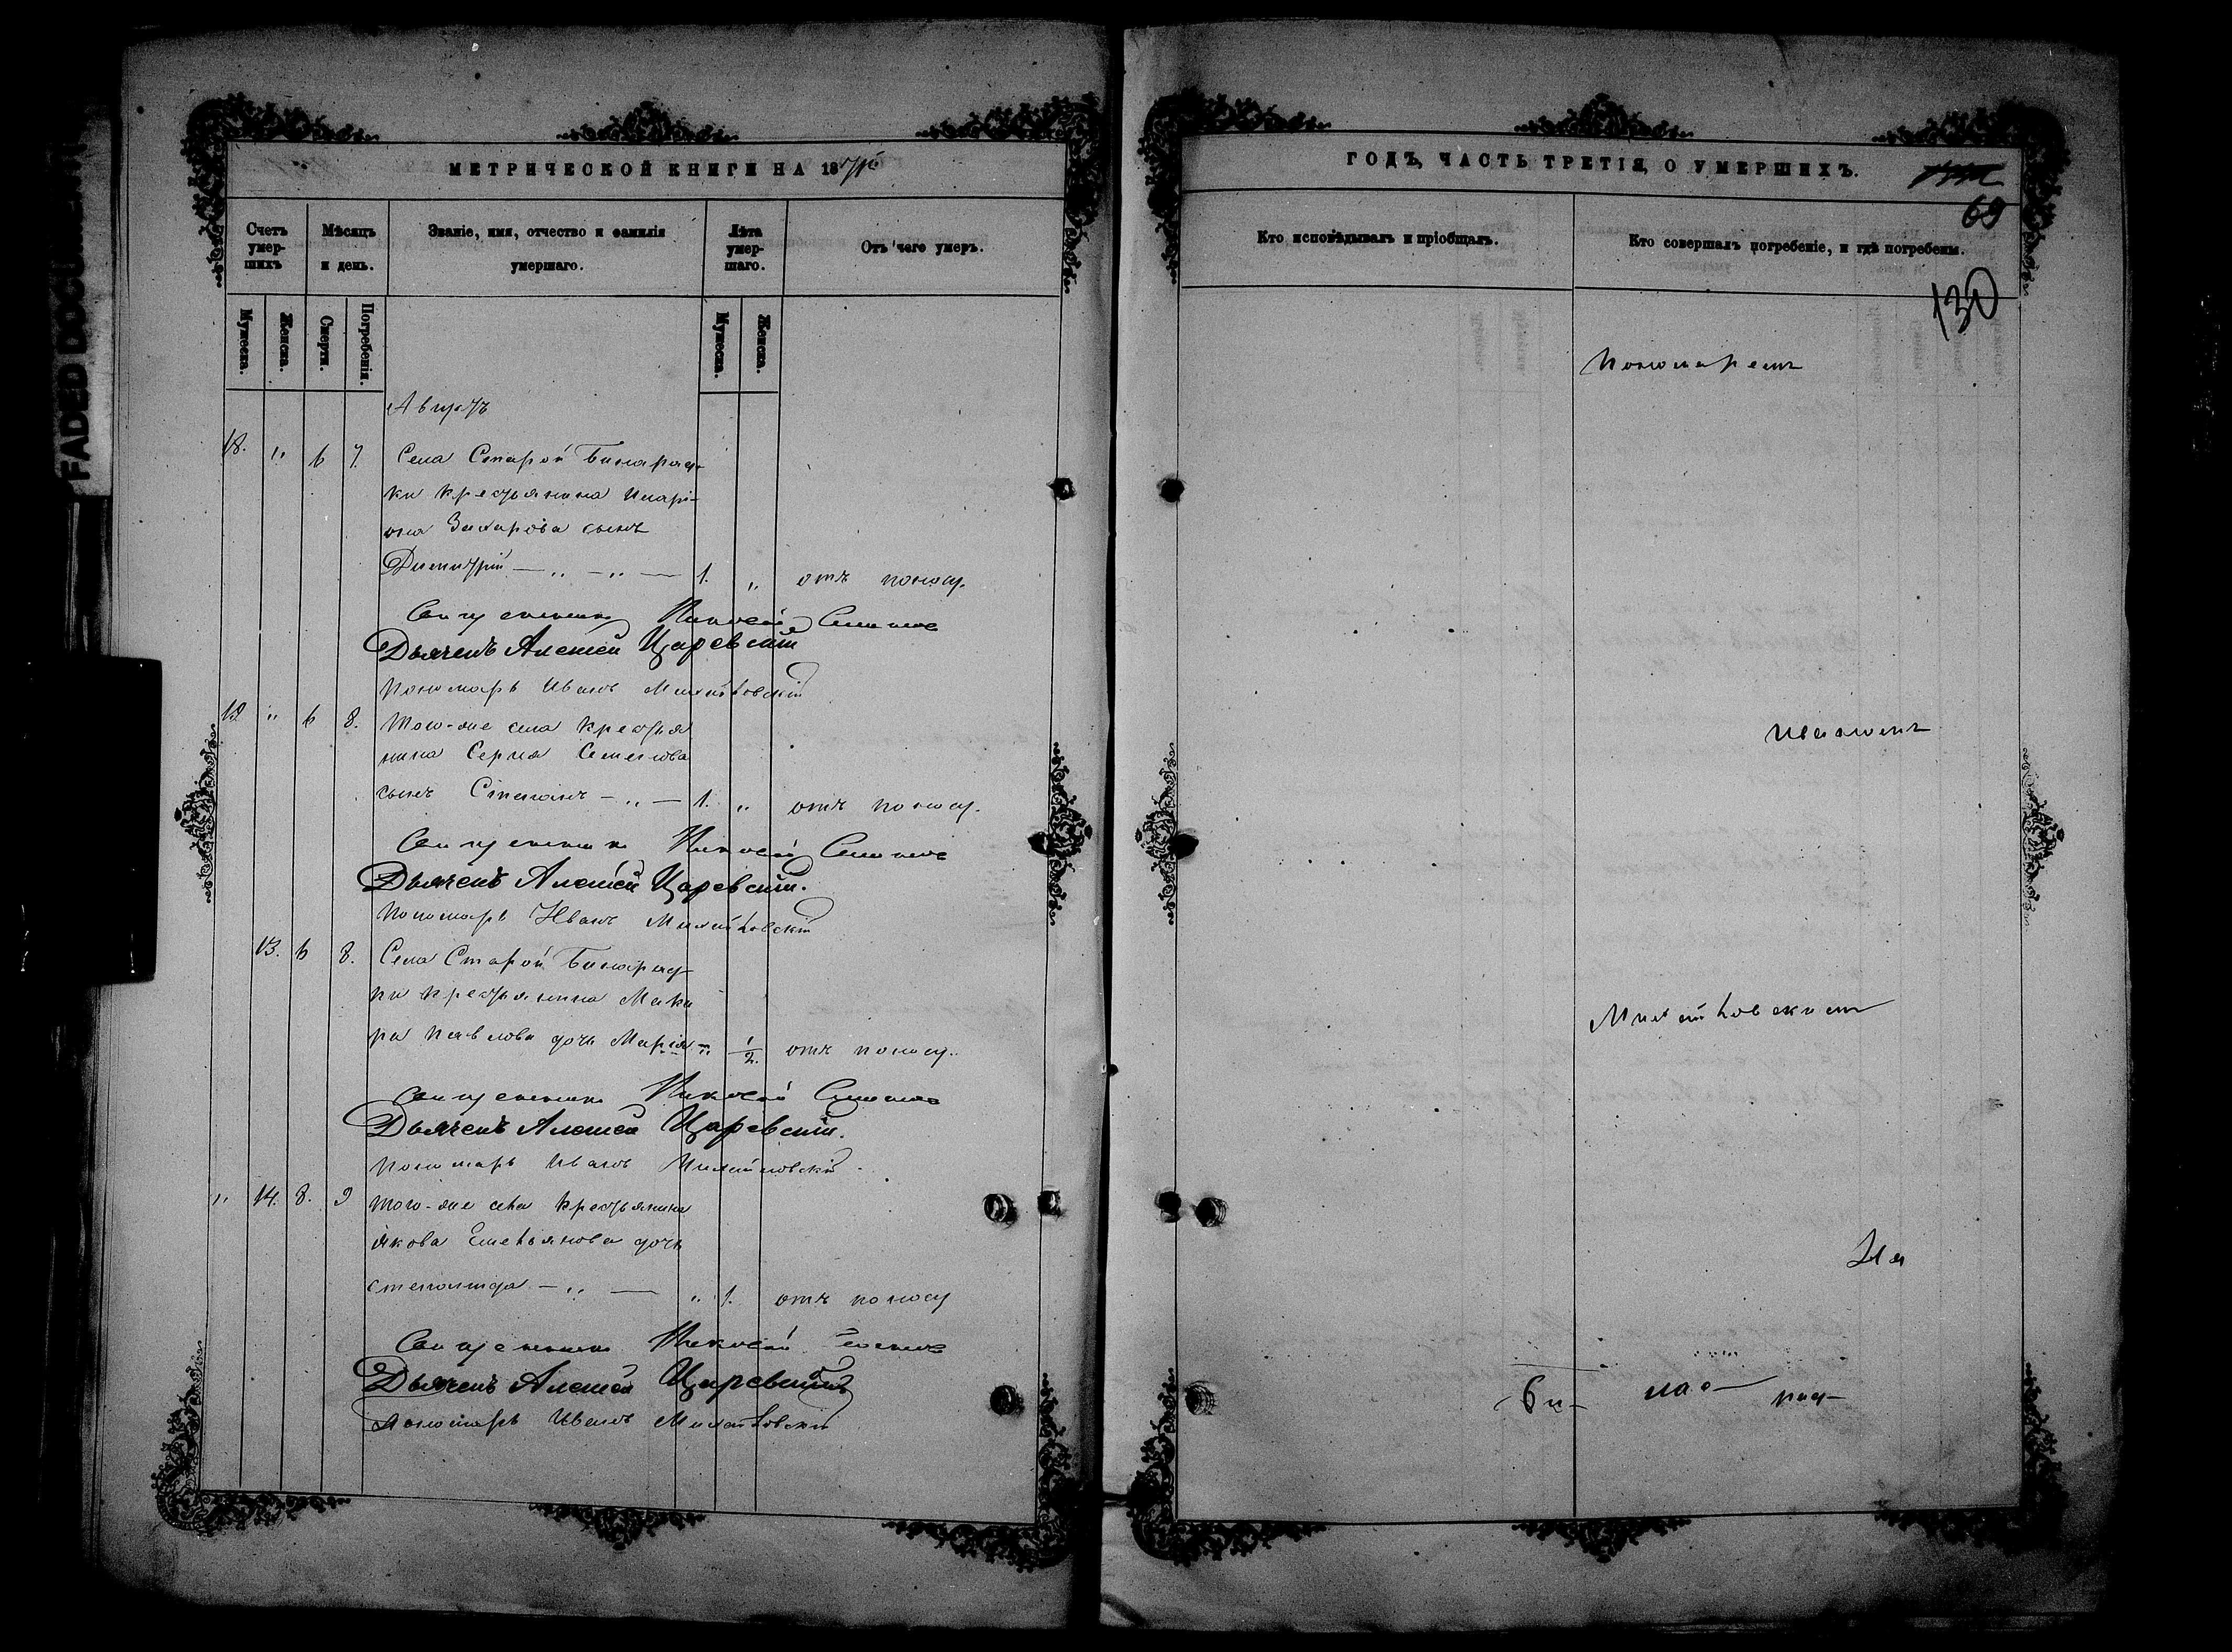 FADED DOCUMENT
МЕТРИЧЕСКОЙ КНИГИ НА 187
Счетъ умер-шихъ
Мѣсяцъ и день.
Званіе, имя, отчество и фамилія умершаго.
Лѣта умер-шаго.
Отъ чего умеръ.
Мужеска.
Женска.
Смерти.
Погребенія.
Мужеска.
Женска.
Августъ
18. " 6 7. Села Старой Бинарад-
ки крестьянина Иларі-
она Захарова сынъ
Димитрій — " — " — 1. " отъ поносу.
Священникъ Николай
Дьячекъ Алексей Царевскій
Пономарь Иванъ Милайковскій
19. " 6 8. Того-же села крестья
нина Сергея Семенова
сынъ Степанъ — " — 1. " отъ поносу.
Священникъ Николай
Дьячекъ Алексей Царевскій.
Пономарь Иванъ Милайковскій
13. 6 8. Села Старой Бинарад-
ки крестьянина Мака
ра Павлова дочь Марія " 1/2. отъ поносу.
Священникъ Николай
Дьячекъ Алексей Царевскій.
Пономарь Иванъ Милайковскій
" 14. 8. 9 Того-же села крестьянина
Якова Емельянова дочь
Степанида — " — " 1. отъ поносу
Священникъ Николай
Дьячекъ Алексей Царевскій
Пономарь Иванъ Милайковскій
ГОДЪ, ЧАСТЬ ТРЕТІЯ, О УМЕРШИХЪ.
69
Кто исповѣдывалъ и пріобщалъ.
Кто совершалъ погребеніе, и гдѣ погребены.
130
Пономаремъ
Иваномъ
Милайковскимъ
На
Би- на- рад-